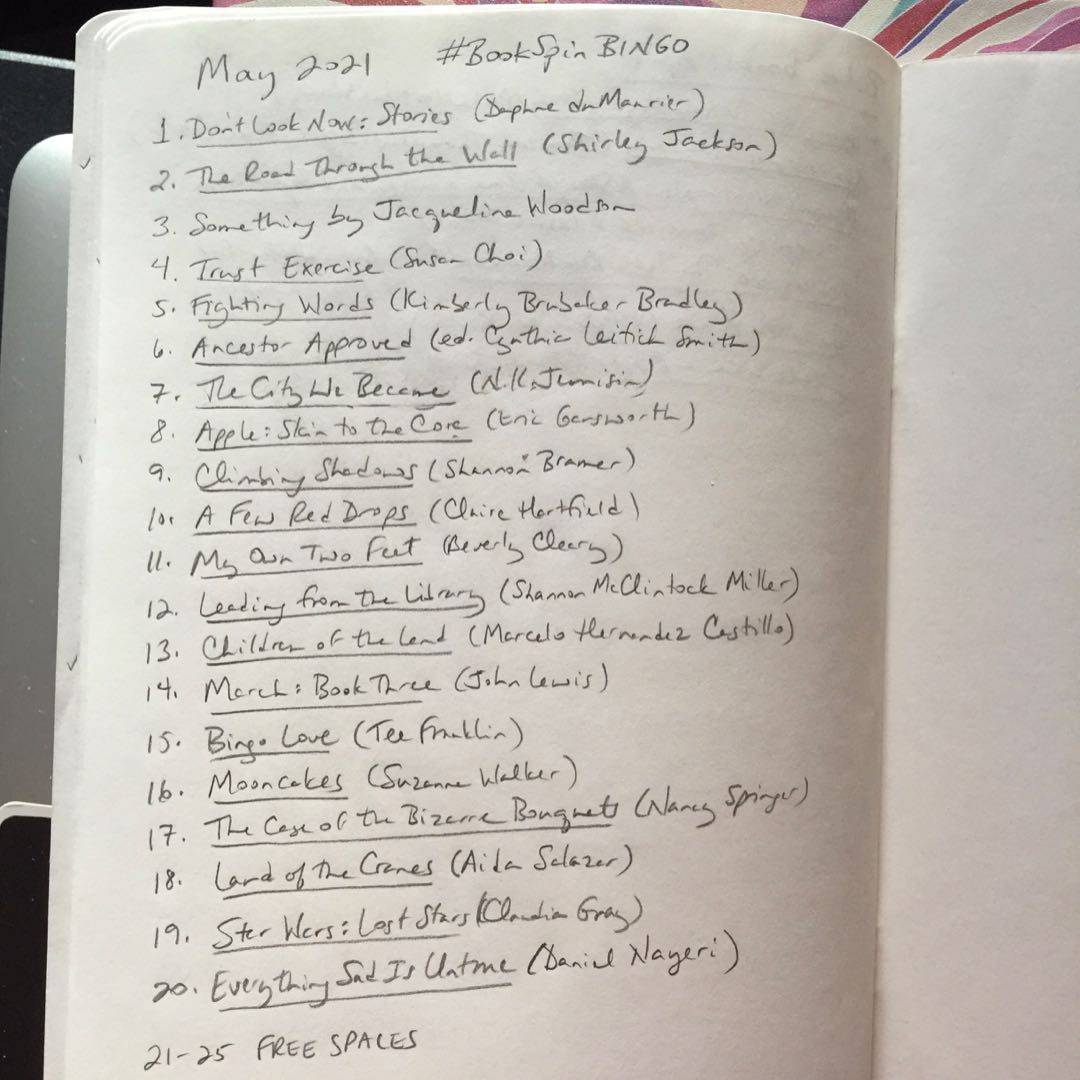 May 2021 #BookSpinBINGO
1. Don't Look Now: Stories (Daphne duMaurier)
2. The Road Through the Wall (Shirley Jackson)
3. Something by Jacqueline Woodson
4. Trust Exercise (Susan Choi)
5. Fighting Words (Kimberly Brubaker Bradley)
6. Ancestor Approved (ed. Cynthia Leitich Smith)
7. The City We Became (N.K. Jemisin)
8. Apple: Skin to the Core (Eric Gansworth)
9. Climbing Shadows (Shannon Bramer)
10. A Few Red Drops (Claire Hartfield)
11. My Own Two Feet (Beverly Cleary)
12. Leading from the Library (Shannon McClintock Miller)
13. Children of the Land (Marcelo Hernandez Castillo)
14. March: Book Three (John Lewis)
15. Bingo Love (Tee Franklin)
16. Mooncakes (Suzanne Walker)
17. The Case of the Bizarre Bouquets (Nancy Springer)
18. Land of the Cranes (Aida Salazar)
19. Star Wars: Lost Stars (Claudia Gray)
20. Everything Sad Is Untrue (Daniel Nayeri)
21-25 FREE SPACES